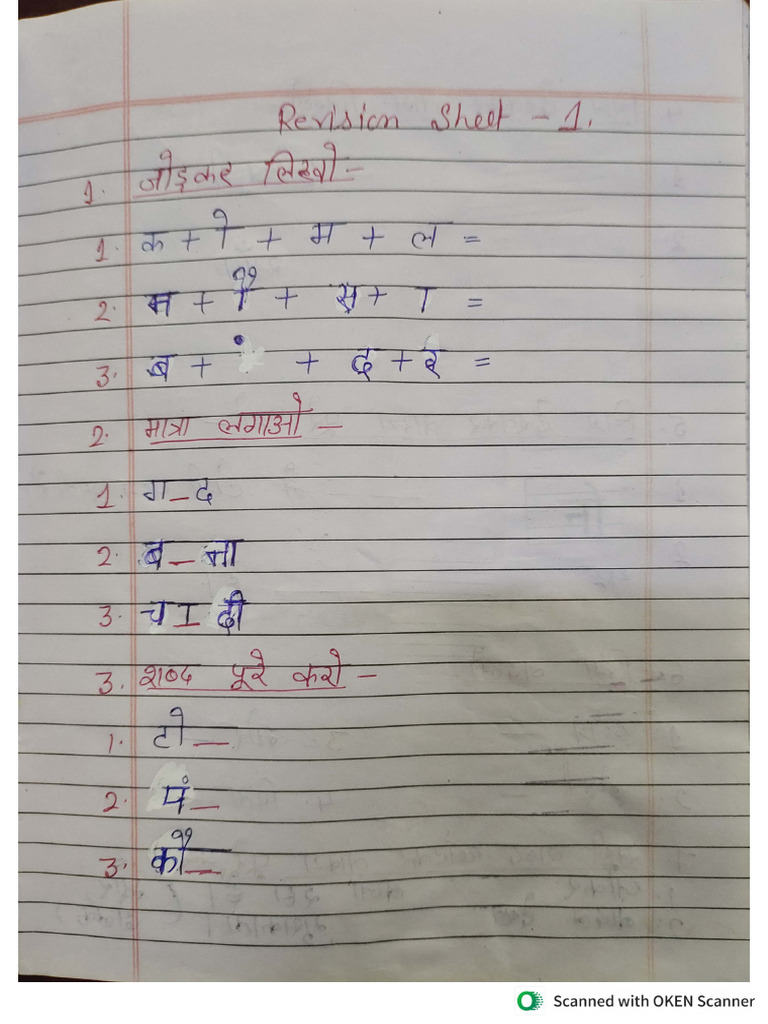 Revision Sheet - 1.
1. जोड़कर लिखो -
1. क + ो + म + ल =
2. म + ौ + स + ा =
3. ब + ं + द + र =
2. मात्रा लगाओ -
1. ग _ द
2. ब _ त्ता
3. चा _ दी
3. शब्द पूरे करो -
1. टो __
2. पं _
3. कौ __
Scanned with OKEN Scanner